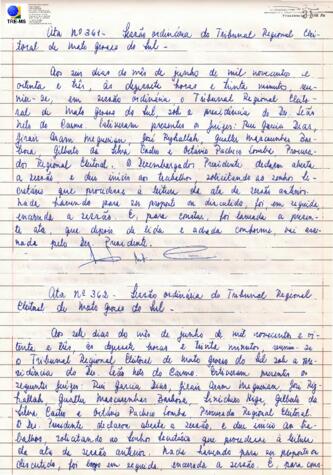 TRE-MS
Ata Nº 361 - Sessão ordinária do Tribunal Regional Elei-
toral de Mato Grosso do Sul -
Aos seis dias do mês de junho de mil novecentos e
oitenta e três, às dezessete horas e trinta minutos reu-
niu-se, em sessão ordinária o Tribunal Regional Eleito-
ral de Mato Grosso do Sul, sob a presidência do Des. Leão
Neto do Carmo. Estiveram presentes os Juízes: Rui Garcia Dias,
Jesus
José
Gilberto da Silva Castro e Octávio Pacheco Lomba Procura-
dor Regional Eleitoral. O Desembargador Presidente declarou aberta
a sessão e deu início aos trabalhos, solicitando ao senhor Se-
cretário que procedesse à leitura da ata da sessão anterior.
Nada havendo para ser proposto ou discutido, foi em seguida,
encerrada a sessão. E, para constar, foi lavrada a presen-
te ata, que depois de lida e achada conforme, vai assi-
nada pelo Des. Presidente.
Ata Nº 362 - Sessão ordinária do Tribunal Regional
Eleitoral de Mato Grosso do Sul -
Aos sete dias do mês de junho de mil novecentos e oi-
tenta e três, às dezessete horas e trinta minutos, reuniu-se
o Tribunal Regional Eleitoral de Mato Grosso do Sul sob a pre-
sidência do Des. Leão Neto do Carmo. Estiveram presentes os
seguintes Juízes: Rui Garcia Dias,
Barbosa, Gilberto da
Silva Castro e Octávio Pacheco Lomba Procurador Regional Eleitoral.
O Des. Presidente declarou aberta a sessão, e deu início ao tra-
balhos, solicitando ao Senhor Secretário que procedesse à leitura
da ata da sessão anterior. Nada havendo para ser proposto ou
discutido, foi logo em seguida, encerrada a sessão. E, para cons-